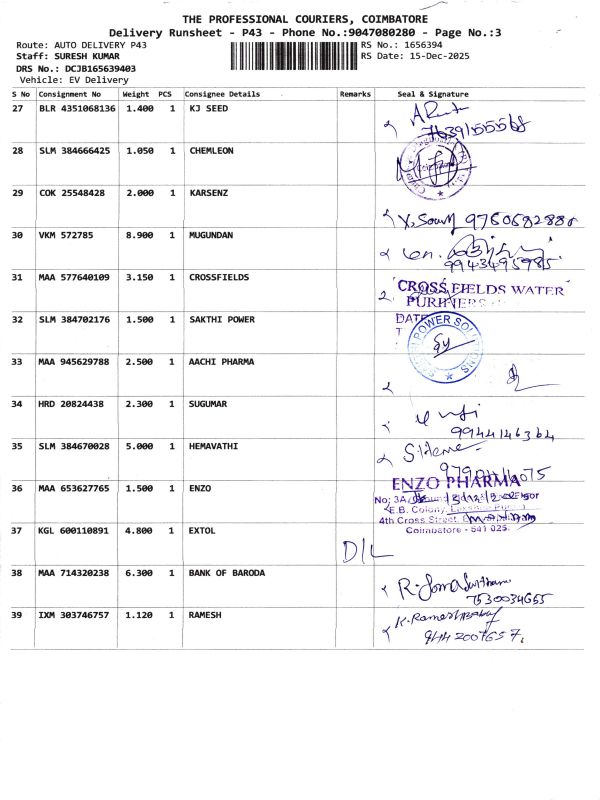 THE PROFESSIONAL COURIERS, COIMBATORE
Delivery Runsheet - P43 - Phone No.:9047080280 - Page No.:3
Route: AUTO DELIVERY P43 RS No.: 1656394
Staff: SURESH KUMAR RS Date: 15-Dec-2025
DRS No.: DCJB165639403
Vehicle: EV Delivery
S No Consignment No Weight PCS Consignee Details Remarks Seal & Signature
27 BLR 4351068136 1.400 1 KJ SEED
28 SLM 384666425 1.050 1 CHEMLEON
29 COK 25548428 2.000 1 KARSENZ
30 VKM 572785 8.900 1 MUGUNDAN
9943495985
31 MAA 577640109 3.150 1 CROSSFIELDS
CROSS FIELDS WATER
PURIFIERS
32 SLM 384702176 1.500 1 SAKTHI POWER
DATE
POWER SOLUTIONS
33 MAA 945629788 2.500 1 AACHI PHARMA
34 HRD 20824438 2.300 1 SUGUMAR
9944146364
35 SLM 384670028 5.000 1 HEMAVATHI
S.Heme
36 MAA 653627765 1.500 1 ENZO
ENZO PHARMA
No: 3A, Floor
E.B. Colony,
4th Cross Street,
Coimbatore - 641 025.
37 KGL 600110891 4.800 1 EXTOL D/L
38 MAA 714320238 6.300 1 BANK OF BARODA
7530034655
39 IXM 303746757 1.120 1 RAMESH
K.Rameshbabu
9442007657.